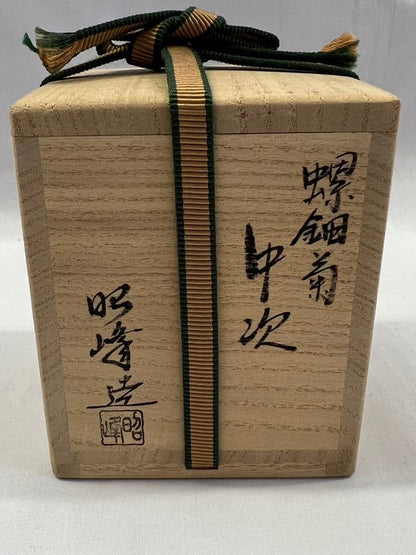 螺鈿菊
中次
昭峰造
昭峰